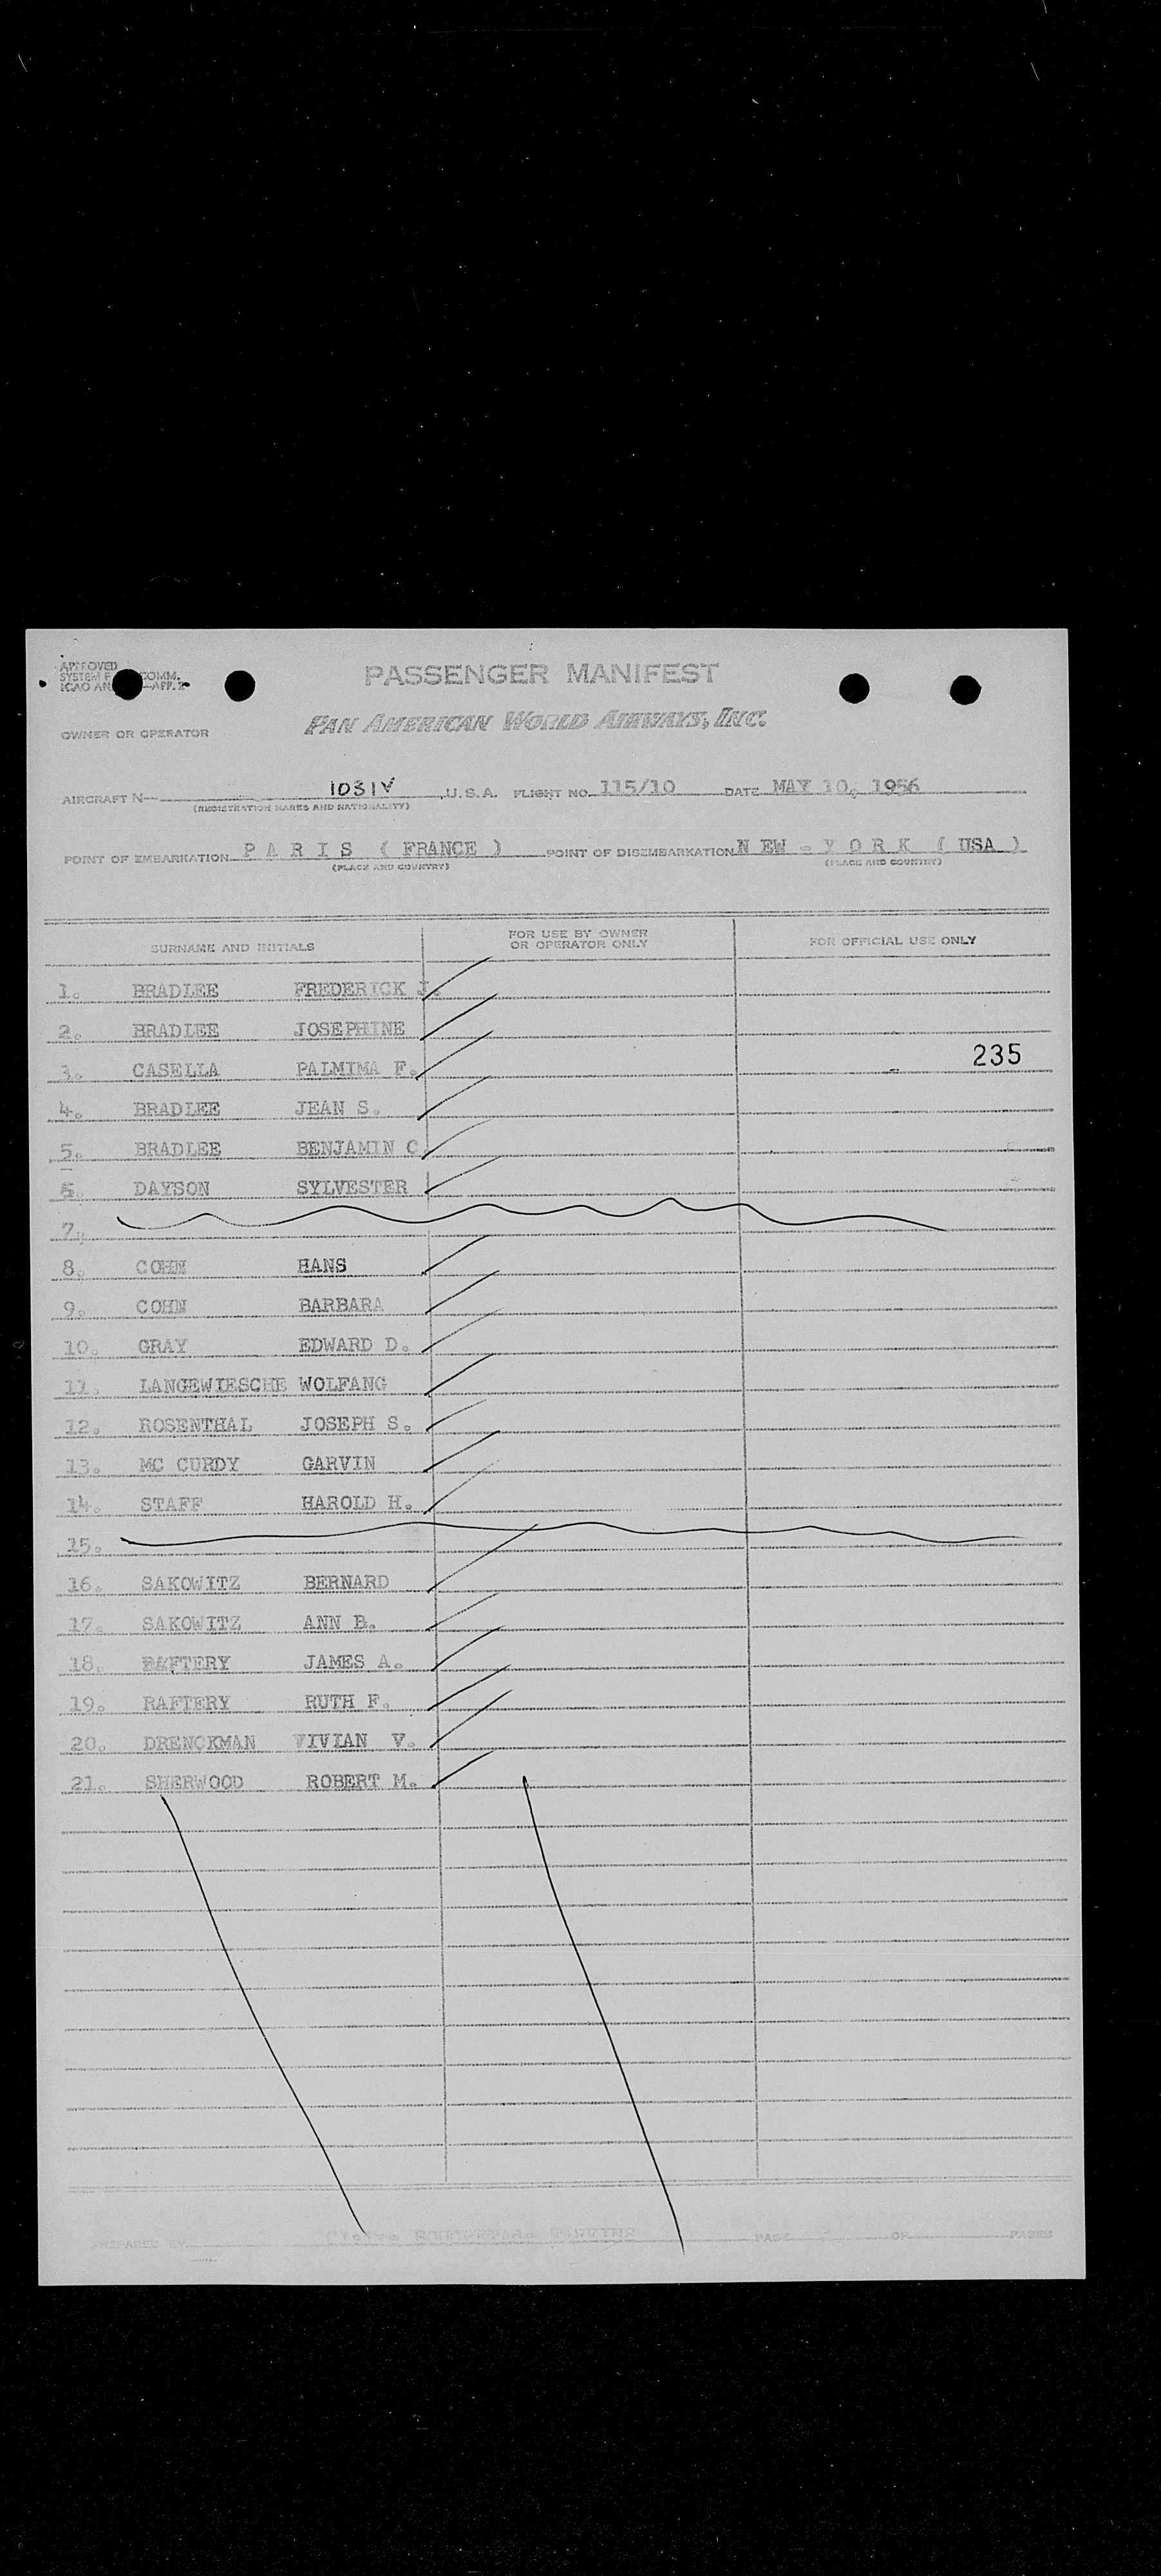 APPROVED
SYSTEM COMM.
ICAO AN —APP. 2
PASSENGER MANIFEST
PAN AMERICAN WORLD AIRWAYS, INC.
OWNER OR OPERATOR
AIRCRAFT N— 1031V , U.S.A. FLIGHT NO. 115/10 DATE MAY 10, 1956
(REGISTRATION MARKS AND NATIONALITY)
POINT OF EMBARKATION P A R I S ( FRANCE ) POINT OF DISEMBARKATION N EW - Y O R K ( USA )
(PLACE AND COUNTRY) (PLACE AND COUNTRY)
SURNAME AND INITIALS FOR USE BY OWNER OR OPERATOR ONLY FOR OFFICIAL USE ONLY
1. BRADLEE FREDERICK J.
2. BRADLEE JOSEPHINE
235
3. CASELLA PALMIMA F.
4. BRADLEE JEAN S.
5. BRADLEE BENJAMIN C
6. DAYSON SYLVESTER
7.
8. COHN HANS
9. COHN BARBARA
10. GRAY EDWARD D.
11. LANGEWIESCHE WOLFANG
12. ROSENTHAL JOSEPH S.
13. MC CURDY GARVIN
14. STAFF HAROLD H.
15.
16. SAKOWITZ BERNARD
17. SAKOWITZ ANN B.
18. RAFTERY JAMES A.
19. RAFTERY RUTH F.
20. DRENCKMAN VIVIAN V.
21. SHERWOOD ROBERT M.
PREPARED BY PAGE OF PAGES